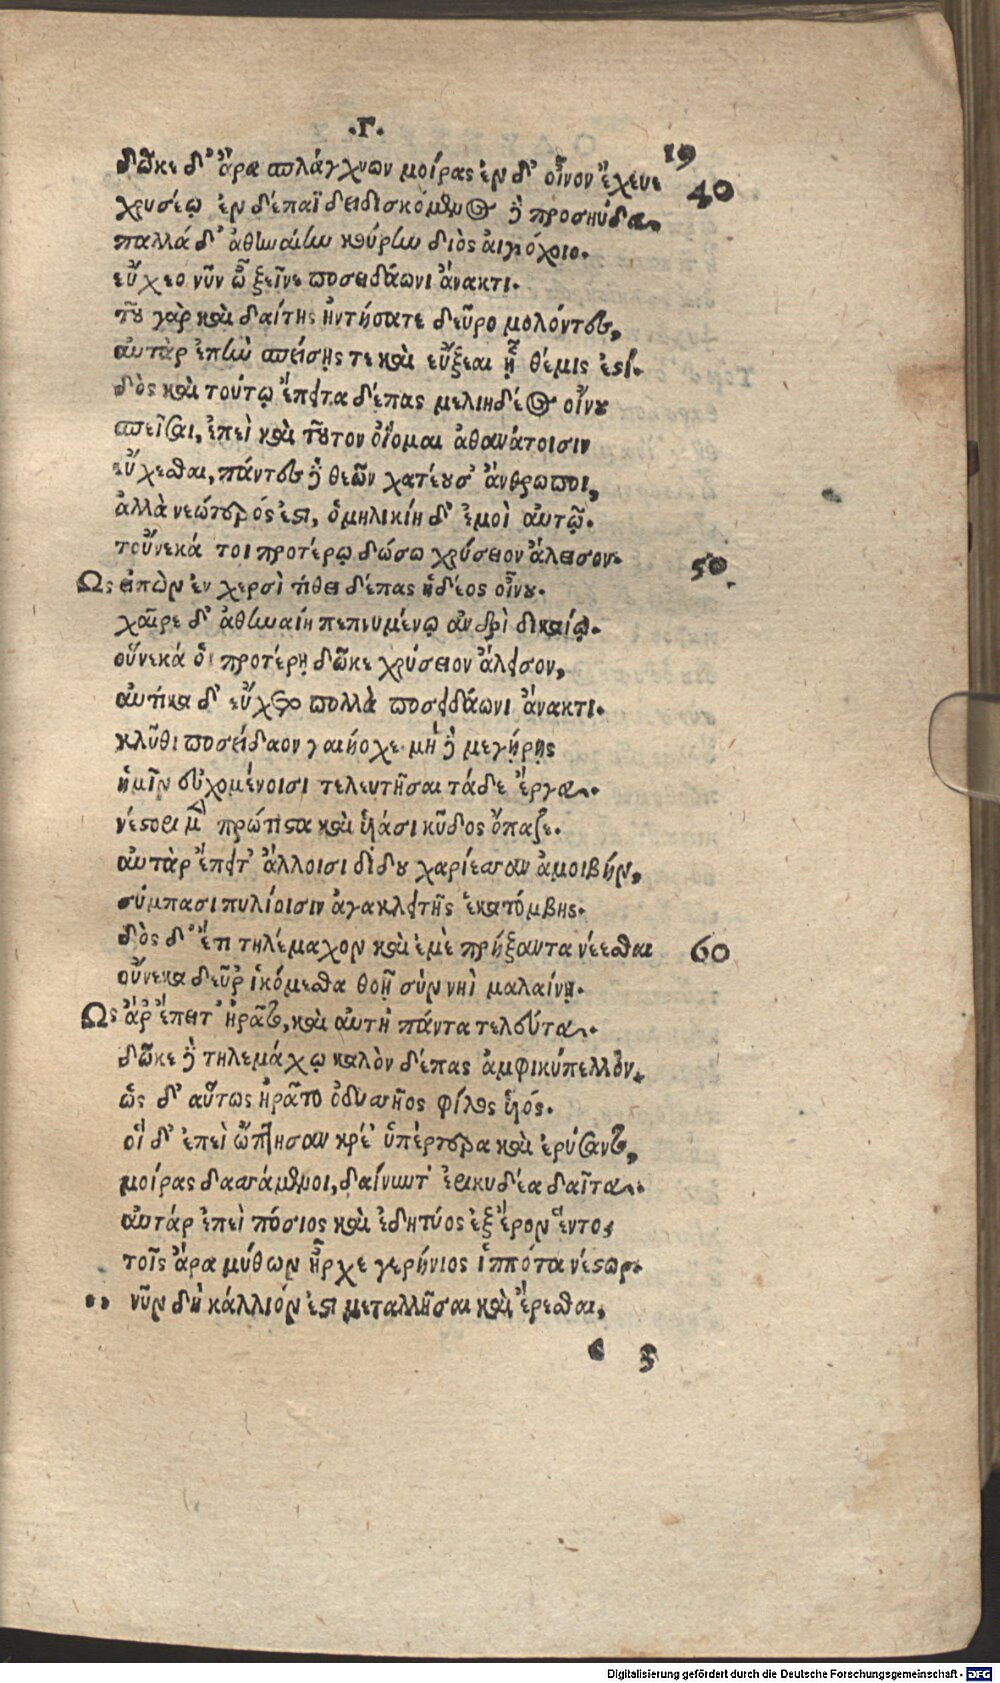 .Γ.
19
δῶκε δ' ἄρα σπλάγχνων μοίρας ἐν δ' οἶνον ἔχευε
40
χρυσέῳ ἐν δέπαϊ δειδισκόμενος δὲ προσηύδα.
παλλάδ' ἀθηναίην κούρην διὸς αἰγιόχοιο.
εὔχεο νῦν ὦ ξεῖνε ποσειδάωνι ἄνακτι.
τοῦ γὰρ καὶ δαίτης ἠντήσατε δεῦρο μολόντες,
αὐτὰρ ἐπὴν σπείσῃς τε καὶ εὔξεαι ᾗ θέμις ἐστί.
δὸς καὶ τούτῳ ἔπειτα δέπας μελιηδέος οἴνου
σπεῖσαι, ἐπεὶ καὶ τοῦτον ὀΐομαι ἀθανάτοισιν
εὔχεσθαι, πάντες δὲ θεῶν χατέουσ' ἄνθρωποι,
ἀλλὰ νεώτερός ἐστι, ὁμηλικίη δ' ἐμοὶ αὐτῷ.
τοὔνεκά τοι προτέρῳ δώσω χρύσειον ἄλεισον.
50
Ως εἰπὼν ἐν χερσὶ τίθει δέπας ἡδέος οἴνου.
χαῖρε δ' ἀθηναίη πεπνυμένῳ ἀνδρὶ δικαίῳ.
οὕνεκά οἱ προτέρῃ δῶκε χρύσειον ἄλεισον,
αὐτίκα δ' εὔχετο πολλὰ ποσειδάωνι ἄνακτι.
κλῦθι ποσείδαον γαιήοχε. μὴ δὲ μεγήρῃς
ἡμῖν εὐχομένοισι τελευτῆσαι τάδε ἔργα.
νέστορι μὲν πρώτιστα καὶ υἱάσι κῦδος ὄπαζε.
αὐτὰρ ἔπειτ' ἄλλοισι δίδου χαρίεσσαν ἀμοιβήν,
σύμπασι πυλίοισιν ἀγακλειτῆς ἑκατόμβης.
δὸς δ' ἔτι τηλέμαχον καὶ ἐμὲ πρήξαντα νέεσθαι
60
οὕνεκα δεῦρ' ἱκόμεσθα θοῇ σὺν νηὶ μελαίνῃ.
Ως ἄρ' ἔπειτ' ἠρᾶτο, καὶ αὐτὴ πάντα τελεύτα.
δῶκε δὲ τηλεμάχῳ καλὸν δέπας ἀμφικύπελλον.
ὣς δ' αὔτως ἠρᾶτο ὀδυσσῆος φίλος υἱός.
οἳ δ' ἐπεὶ ὤπτησαν κρέ' ὑπέρτερα καὶ ἐρύσαντο,
μοίρας δασσάμενοι, δαίνυντ' ἐρικυδέα δαῖτα.
αὐτάρ ἐπεὶ πόσιος καὶ ἐδητύος ἐξ ἔρον ἕντο,
τοῖς ἄρα μύθων ἦρχε γερήνιος ἱππότα νέστωρ.
,, νῦν δὴ κάλλιόν ἐστι μεταλλῆσαι καὶ ἔρεσθαι,
c 3
Digitalisierung gefördert durch die Deutsche Forschungsgemeinschaft - DFG